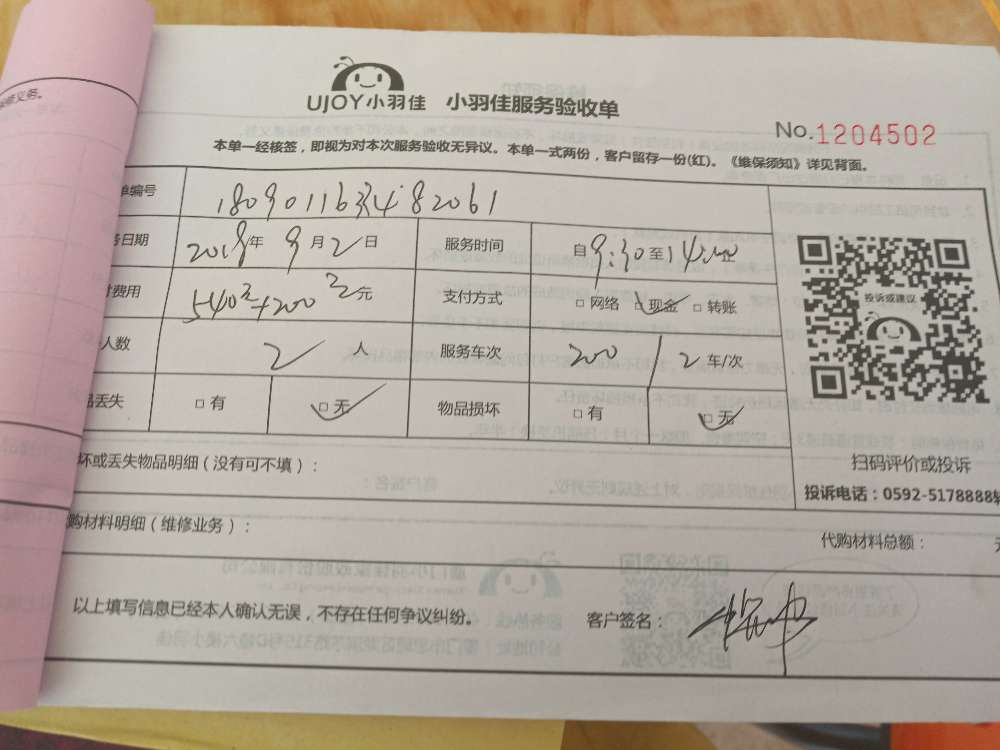 修义务。
UJOY小羽佳 小羽佳服务验收单
No.1204502
本单一经核签，即视为对本次服务验收无异议。本单一式两份，客户留存一份(红)。《维保须知》详见背面。
单编号 180901163482061
务日期 2018年9月2日 服务时间 自9:30至14
付费用 540元+200元 支付方式 □网络 □现金 □转账
人数 2人 服务车次 200/2车/次
品丢失 □有 □无 物品损坏 □有 □无
投诉或建议
扫码评价或投诉
投诉电话：0592-5178888转
坏或丢失物品明细（没有可不填）：
购材料明细（维修业务）：
代购材料总额：
以上填写信息已经本人确认无误，不存在任何争议纠纷。 客户签名：